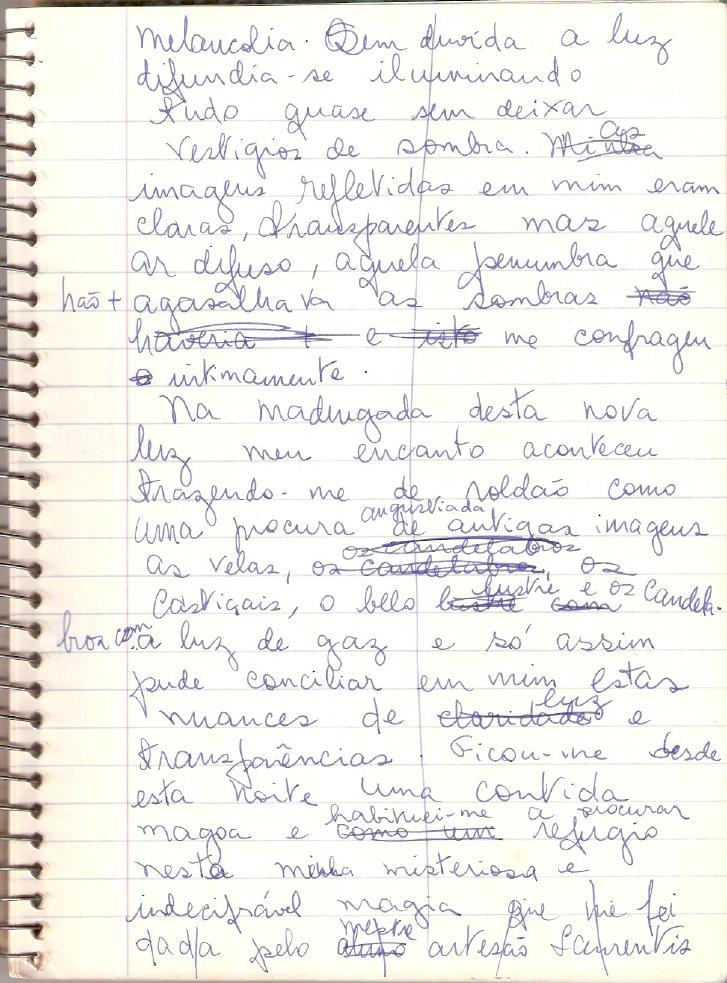 melancolia. Sem duvida a luz
difundia-se iluminando
tudo quase sem deixar
vestigios de sombra. Minha as
imagens refletidas em mim eram
claras, transparentes mas aquele
ar difuso, aquela penumbra que
não + agasalhava as sombras não
haveria + e isto me confragen
e intimamente.
Na madrugada desta nova
luz meu encanto aconteceu
trazendo-me de roldão como
uma procura angustiada de antigas imagens
os candelabros
as velas, os candelabros, os
castiçais, o belo lustre e os candela-
bros com a luz de gaz e só assim
pude conciliar em mim estas
nuances de claridade luz e
transparências. Ficou-me desde
esta noite uma contida
habituei-me a procurar
magoa e como um refugio
nesta minha misteriosa e
indecifrável magia que me foi
dada pelo mestre artesão Laurentis